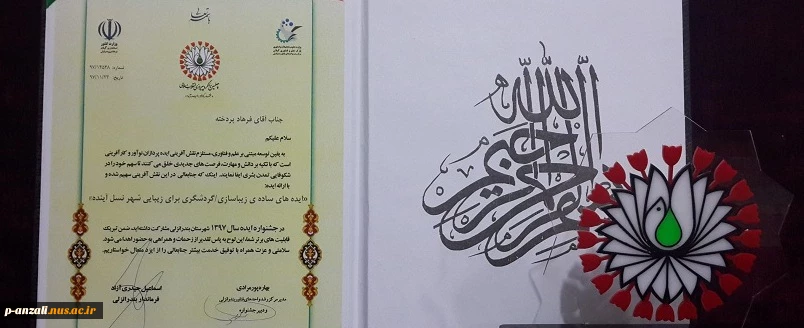 باسمه تعالی
وزارت کشور
شماره: ۹۷/۱۴۵۳۸
تاریخ: ۹۷/۱۱/۲۳
جناب آقای فرهاد پردخته
سلام علیکم
به یقین توسعه مبتنی بر علم و فناوری، مستلزم نقش آفرینی ایده پردازان نوآور و کارآفرینی
است که با تکیه بر دانش و مهارت، فرصت های جدیدی خلق می کنند تا سهم خود را در
شکوفایی تمدن بشری ایفا نمایند. اینک که جنابعالی در این نقش آفرینی سهیم شده و
با ارائه ایده:
«ایده های ساده ی زیباسازی/گردشگری برای زیبایی شهر نسل آینده»
در جشنواره ایده سال ۱۳۹۷ شهرستان بندرانزلی مشارکت داشته اید، ضمن تبریک
قابلیت های برتر شما، این لوح به پاس تقدیر از زحمات و همراهی به حضور اهدا می شود.
سلامتی و عزت همراه با توفیق خدمت بیشتر جنابعالی را از ایزد متعال خواستاریم.
بهاره پورمرادی
مدیر مرکز رشد واحدهای فناور بندرانزلی
و دبیر جشنواره
اسماعیل حیدری آزاد
فرماندار بندرانزلی
بسم الله الرحمن الرحیم
p-anzali.nus.ac.ir